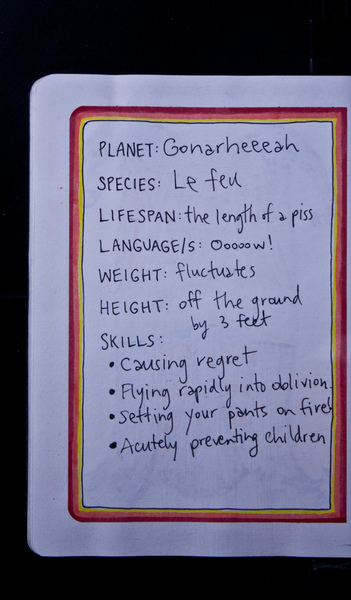 PLANET: Gonarheeeah
SPECIES: Le feu
LIFESPAN: the length of a piss
LANGUAGE/S: Ooooow!
WEIGHT: fluctuates
HEIGHT: off the ground
by 3 feet
SKILLS:
• Causing regret
• Flying rapidly into oblivion.
• Setting your pants on fire!
• Acutely preventing children